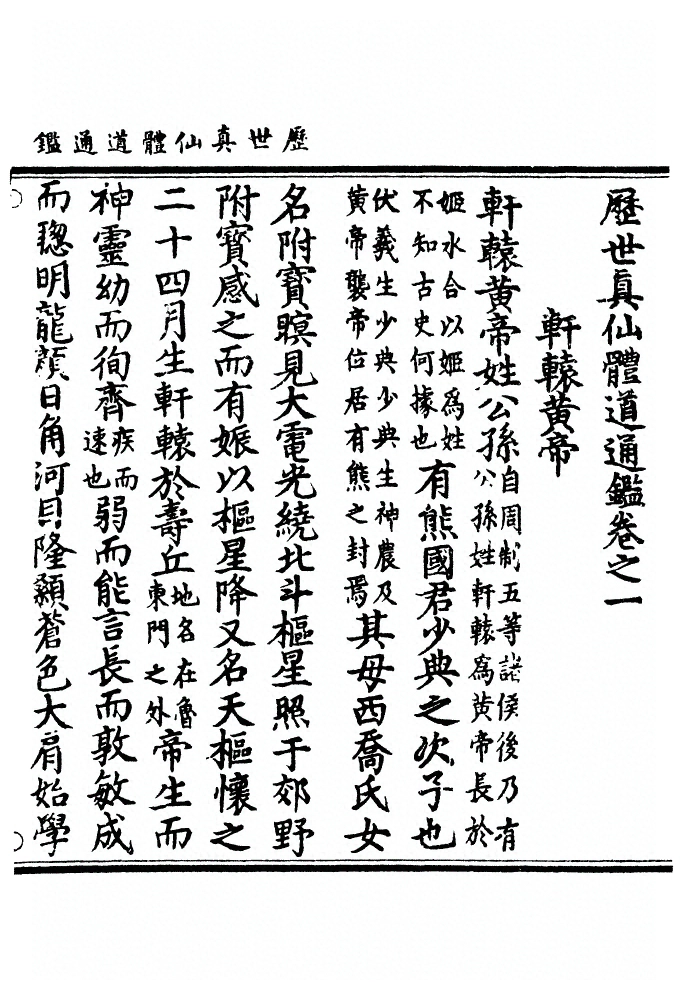 歷世真仙體道通鑑
歷世真仙體道通鑑卷之一
軒轅黃帝
軒轅黃帝姓公孫自周制五等諸侯後乃有公孫姓軒轅為黃帝長於
姬水合以姬為姓不知古史何據也有熊國君少典之次子也
伏羲生少典少典生神農及黃帝襲帝位居有熊之封焉其母西喬氏女
名附寶瞑見大電光繞北斗樞星照于郊野
附寶感之而有娠以樞星降又名天樞懷之
二十四月生軒轅於壽丘地名在魯東門之外帝生而
神靈幼而徇齊疾而速也弱而能言長而敦敏成
而聰明龍顏日角河目隆顙蒼色大肩始學